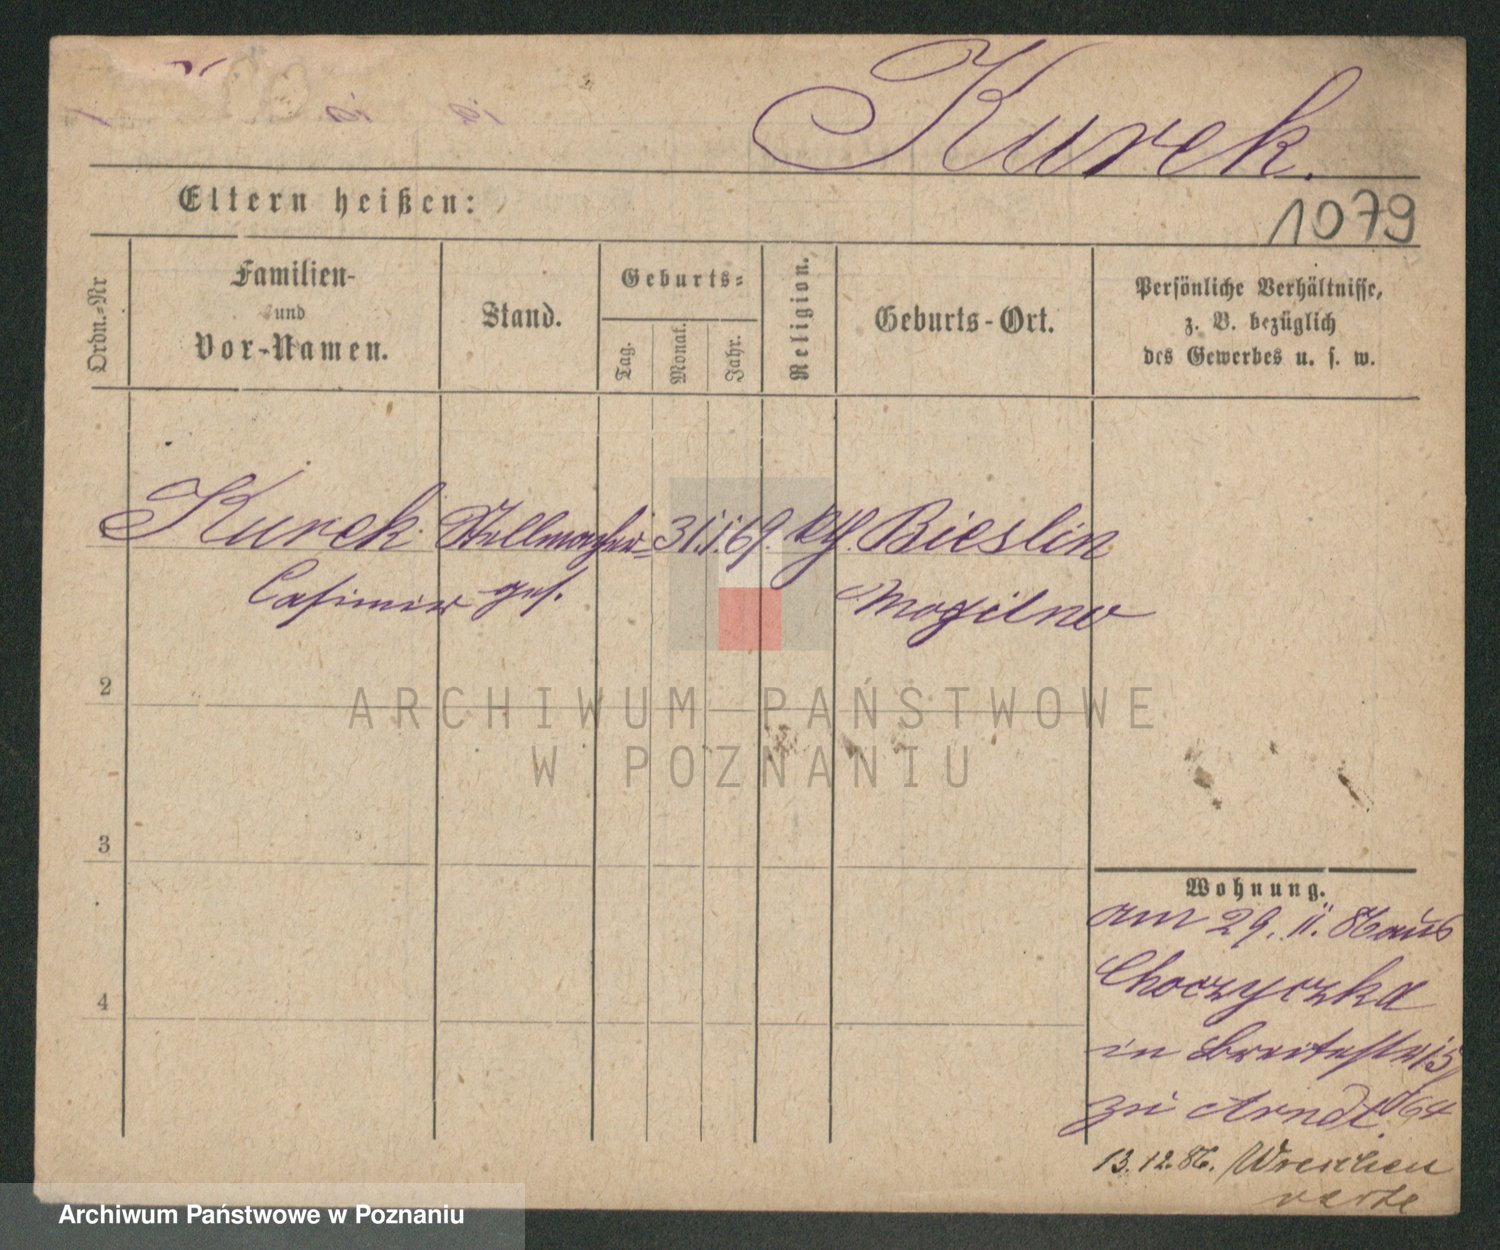 Kurek.
Eltern heißen:
1079
Ordn.-Nr
Familien-
und
Vor-Namen.
Stand.
Geburts-
Tag.
Monat.
Jahr.
Religion.
Geburts-Ort.
Persönliche Verhältnisse,
z. B. bezüglich
des Gewerbes u. s. w.
Kurek Stellmacher- 31. 1. 69. kth. Bieslin
Casimir ges. Mogilno
2
ARCHIWUM PAŃSTWOWE
W POZNANIU
3
Wohnung.
am 29. 11. 86 aus
Choczyczka
in Breitestr 15/
zu Arndt 64
4
13. 12. 86. Wreschen
Archiwum Państwowe w Poznaniu